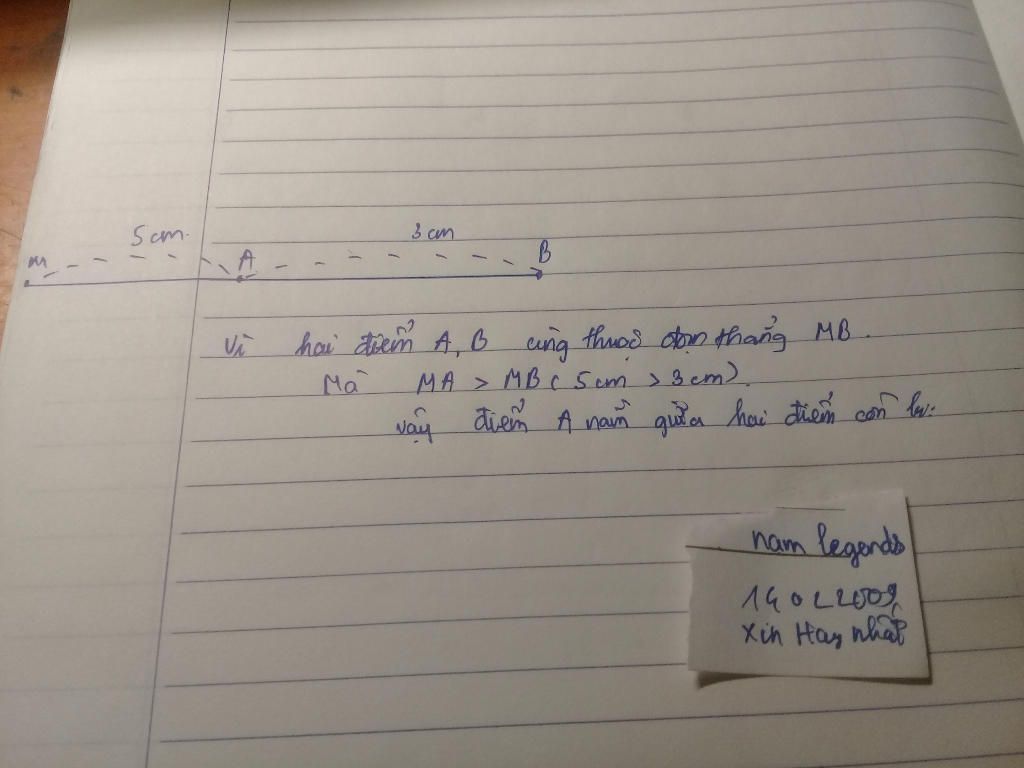 5cm.
3cm
M
A
B
Vì hai điểm A, B cùng thuộc đoạn thẳng MB.
Mà MA > MB (5cm > 3cm).
vậy điểm A nằm giữa hai điểm còn lại.
nam legends
14022009
Xin Hay nhất